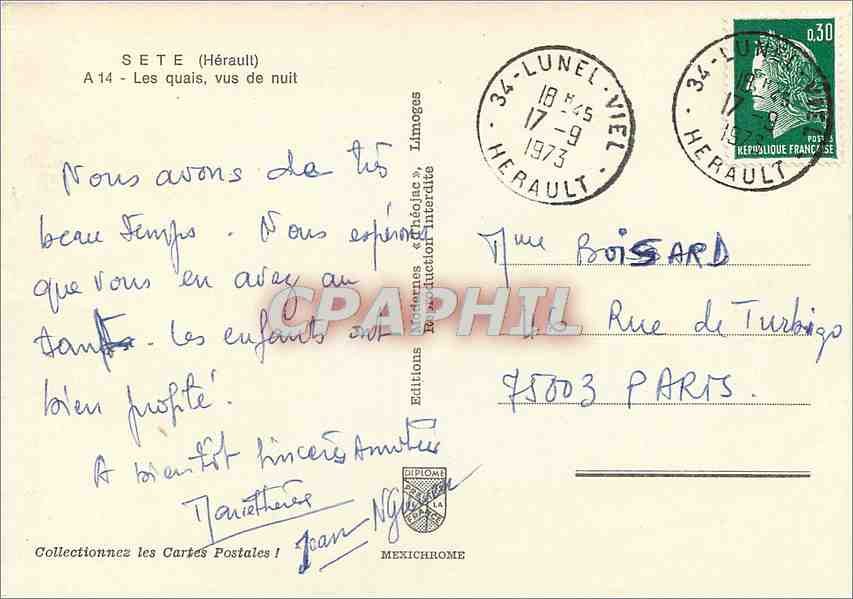 SETE (Hérault)
A 14 - Les quais, vus de nuit
Nous avons de très
beau temps. Nous espérons
que vous en avez eu
tant. Les enfants ont
bien profité.
A bientôt Sincères Amitiés
Jean
Collectionnez les Cartes Postales !
Editions Modernes « Théojac », Limoges
Reproduction Interdite
DIPLOME
PRESTIGE
DE LA
FRANCE
MEXICHROME
34-LUNEL-VIEL
18 H 45
17 -9
1973
HERAULT
34-LUNEL-VIEL
18 H 45
17 -9
1973
HERAULT
0,30
POSTES
REPUBLIQUE FRANÇAISE
Mme BOISSARD
46 Rue de Turbigo
75003 PARIS.
CPAPHIL